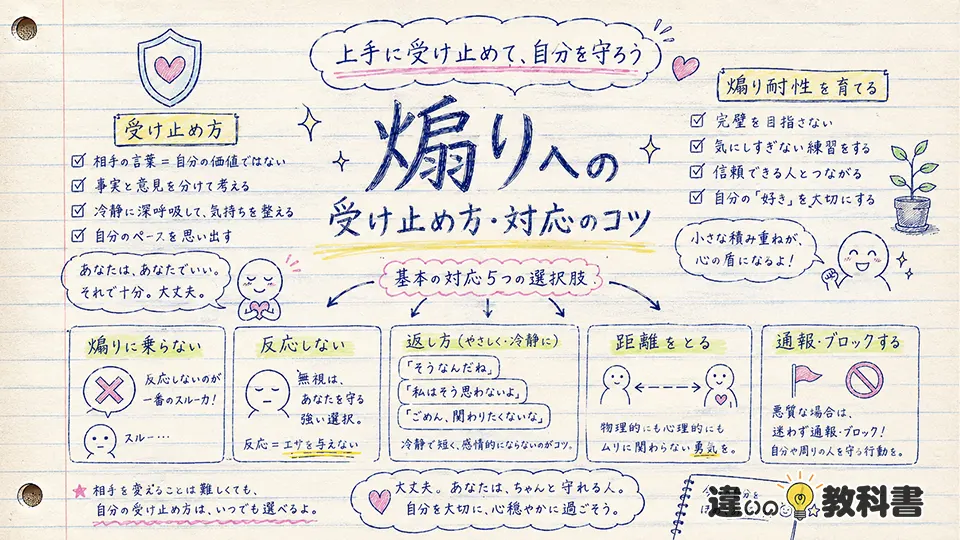 上手に受け止めて、自分を守ろう
煽りへの
受け止め方・対応のコツ
受け止め方
相手の言葉=自分の価値ではない
事実と意見を分けて考える
冷静に深呼吸して、気持ちを整える
自分のペースを思い出す
あなたは、あなたでいい。
それで十分。大丈夫。
煽り耐性を育てる
完璧を目指さない
気にしすぎない練習をする
信頼できる人とつながる
自分の「好き」を大切にする
小さな積み重ねが、
心の盾になるよ!
基本の対応5つの選択肢
煽りに乗らない
反応しないのが
一番のスルー力!
スルー…
反応しない
無視は、
あなたを守る
強い選択。
反応=エサを与えない
返し方(やさしく・冷静に)
「そうなんだね」
「私はそう思わないよ」
「ごめん、関わりたくないな」
冷静で短く、感情的にならないのがコツ。
距離をとる
物理的にも心理的にも
ムリに関わらない勇気を。
通報・ブロックする
悪質な場合は、
迷わず通報・ブロック!
自分や周りの人を守る行動を。
相手を変えることは難しくても、
自分の受け止め方は、いつでも選べるよ。
大丈夫。あなたは、ちゃんと守れる人。
自分を大切に、心穏やかに過ごそう。
違いの教科書